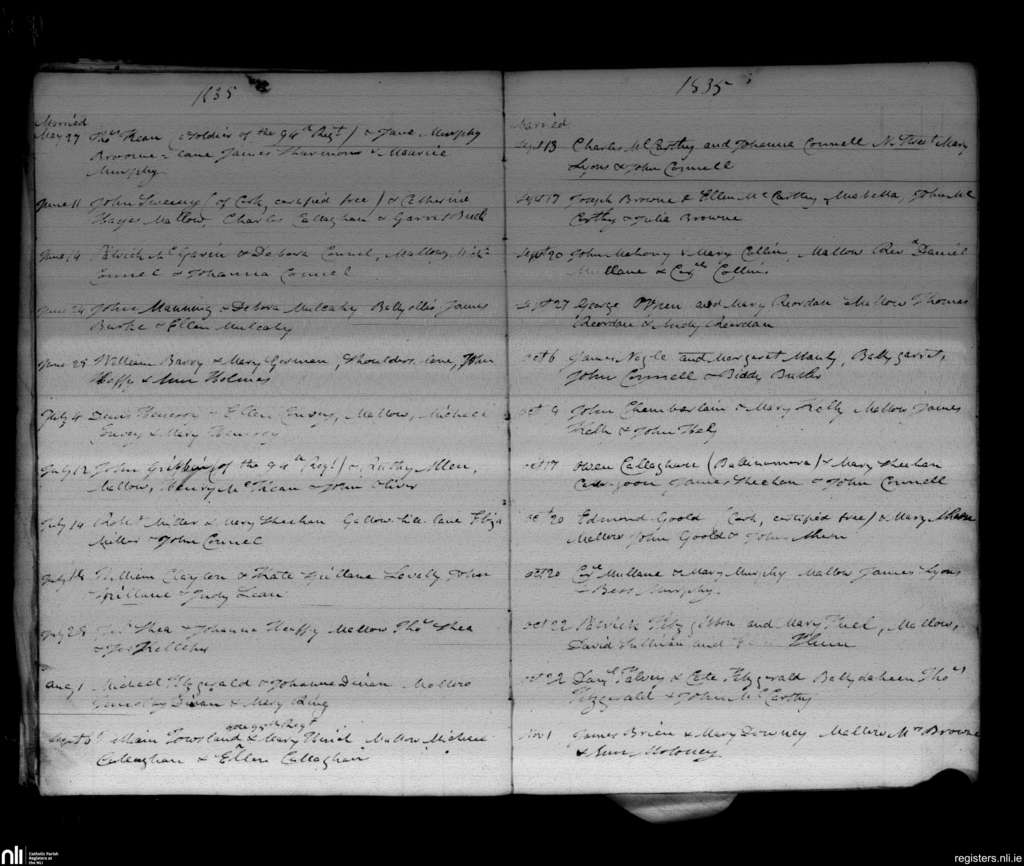 1835
Married
May 27 Thos Kean (Soldier of the 94th Regt) & Jane Murphy
Broome-lane James & Maurice
Murphy
June 11 John Sweeny (of Cork, certified free) & Catherine
Hayes Mallow, Charles Callaghan & Garret Buck
June 14 McGavin & Debora Connel, Mallow,
Connel & Johanna Connel
June 24 John Manning & Debora Mulcahy Ballyellis James
Burke & Ellen Mulcahy
June 28 William Barry & Mary Gorman, Shoulders lane, John
Heffy & Ann Holmes
July 4 Denis & Ellen Mallow, Michael
& Mary
July 12 John Griffin (of the 94th Regt) & Cathy Allen,
Mallow, Henry & John Oliver
July 14 Robt Miller & Mary Sheehan Gallows hill lane Eliza
Miller & John Connel
July 18 William Clayton & Kate Spillane Lovely John
Spillane & Judy Lean
July 28 Shea & Johanna Heffy Mallow Thos Shea
& Kelleher
Aug 1 Michael Fitzgerald & Johanna Divan Mallow
Divan & Mary King
of the 94th Regt
Sept Towsland & Mary Mallow, Michael
Callaghan & Ellen Callaghan
1835
Married
Sept 13 Charles McCarthy and Johanna Connell N. Street Mary
Lyons & John Connell
Sept 17 Joseph Browne & Ellen McCarthy John Mc
Carthy & Julia Browne
Sept 20 John Mahony & Mary Collins, Mallow Revd Daniel
Mullane & Cors Collins
Sept 27 George O'Brien and Mary Reordan Mallow Thomas
Reordan & Judy Reordan
Oct 6 James Nagle and Margaret Manly, Ballygarret,
John Connell & Biddy Butler
Oct 9 John Chamberlain & Mary Kelly Mallow James
Kelly & John Healy
Oct 17 Owen Callaghan (Ballinamona) & Mary Sheehan
James Sheehan & John Connell
Oct 20 Edmond Goold (Cork, certified free) & Mary Ahern
Mallow John Goold & John Ahern
Oct 20 Mullane & Mary Murphy Mallow James Lyons
& Bess Murphy.
Oct 22 Patrick Fitzgibbon and Mary Mallow,
David Sullivan and
Oct 22 Danl Falvey & Cate Fitzgerald Ballydaheen Thos
Fitzgerald & John McCarthy
Nov 1 James Brien & Mary Downey Mallow Browne
& Ann Moloney
nli
Catholic Parish
Registers at
the NLI
registers.nli.ie